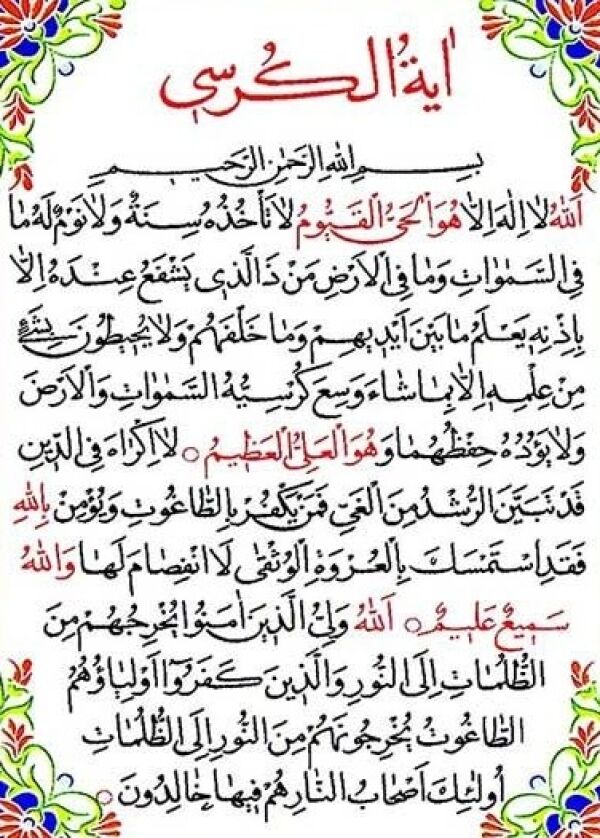 اٰيةُ الـكُرسي
بِسْمِ اللهِ الرَّحْمٰنِ الرَّحيمِ
اَللهُ لا اِلٰهَ اِلّا هُوَ الْحَيُّ الْقَيُّومُ لا تَأْخُذُهُ سِنَةٌ وَلا نَوْمٌ لَهُ مَا
فِي السَّمٰوَاتِ وَمَا فِي الْاَرْضِ مَنْ ذَا الَّذِي يَشْفَعُ عِنْدَهُ اِلّا
بِاِذْنِهِ يَعْلَمُ مَا بَيْنَ اَيْدِيهِمْ وَمَا خَلْفَهُمْ وَلا يُحِيطُونَ بِشَيْءٍ
مِنْ عِلْمِهِ اِلّا بِمَا شَاءَ وَسِعَ كُرْسِيُّهُ السَّمٰوَاتِ وَالْاَرْضَ
وَلا يَؤُدُهُ حِفْظُهُمَا وَهُوَ الْعَلِيُّ الْعَظِيمُ ○ لا اِكْرَاهَ فِي الدِّينِ
قَدْ تَبَيَّنَ الرُّشْدُ مِنَ الْغَيِّ فَمَنْ يَكْفُرْ بِالطَّاغُوتِ وَيُؤْمِنْ بِاللهِ
فَقَدِ اسْتَمْسَكَ بِالْعُرْوَةِ الْوُثْقٰى لَا انْفِصَامَ لَهَا وَاللهُ
سَمِيعٌ عَلِيمٌ ○ اَللهُ وَلِيُّ الَّذِينَ اٰمَنُوا يُخْرِجُهُمْ مِنَ
الظُّلُمَاتِ اِلَى النُّورِ وَالَّذِينَ كَفَرُوا اَوْلِيَاؤُهُمُ
الطَّاغُوتُ يُخْرِجُونَهُمْ مِنَ النُّورِ اِلَى الظُّلُمَاتِ
اُولٰئِكَ اَصْحَابُ النَّارِ هُمْ فِيهَا خَالِدُونَ ○